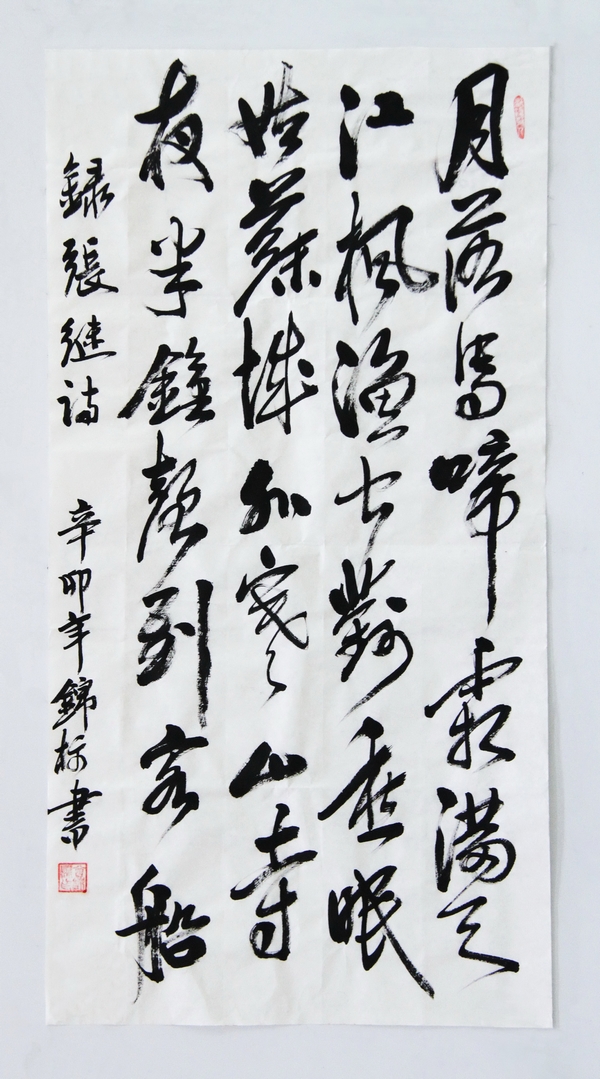 月落烏啼霜滿天
江楓漁火對愁眠
姑蘇城外寒山寺
夜半鐘聲到客船
錄張継詩
辛卯年錦標書